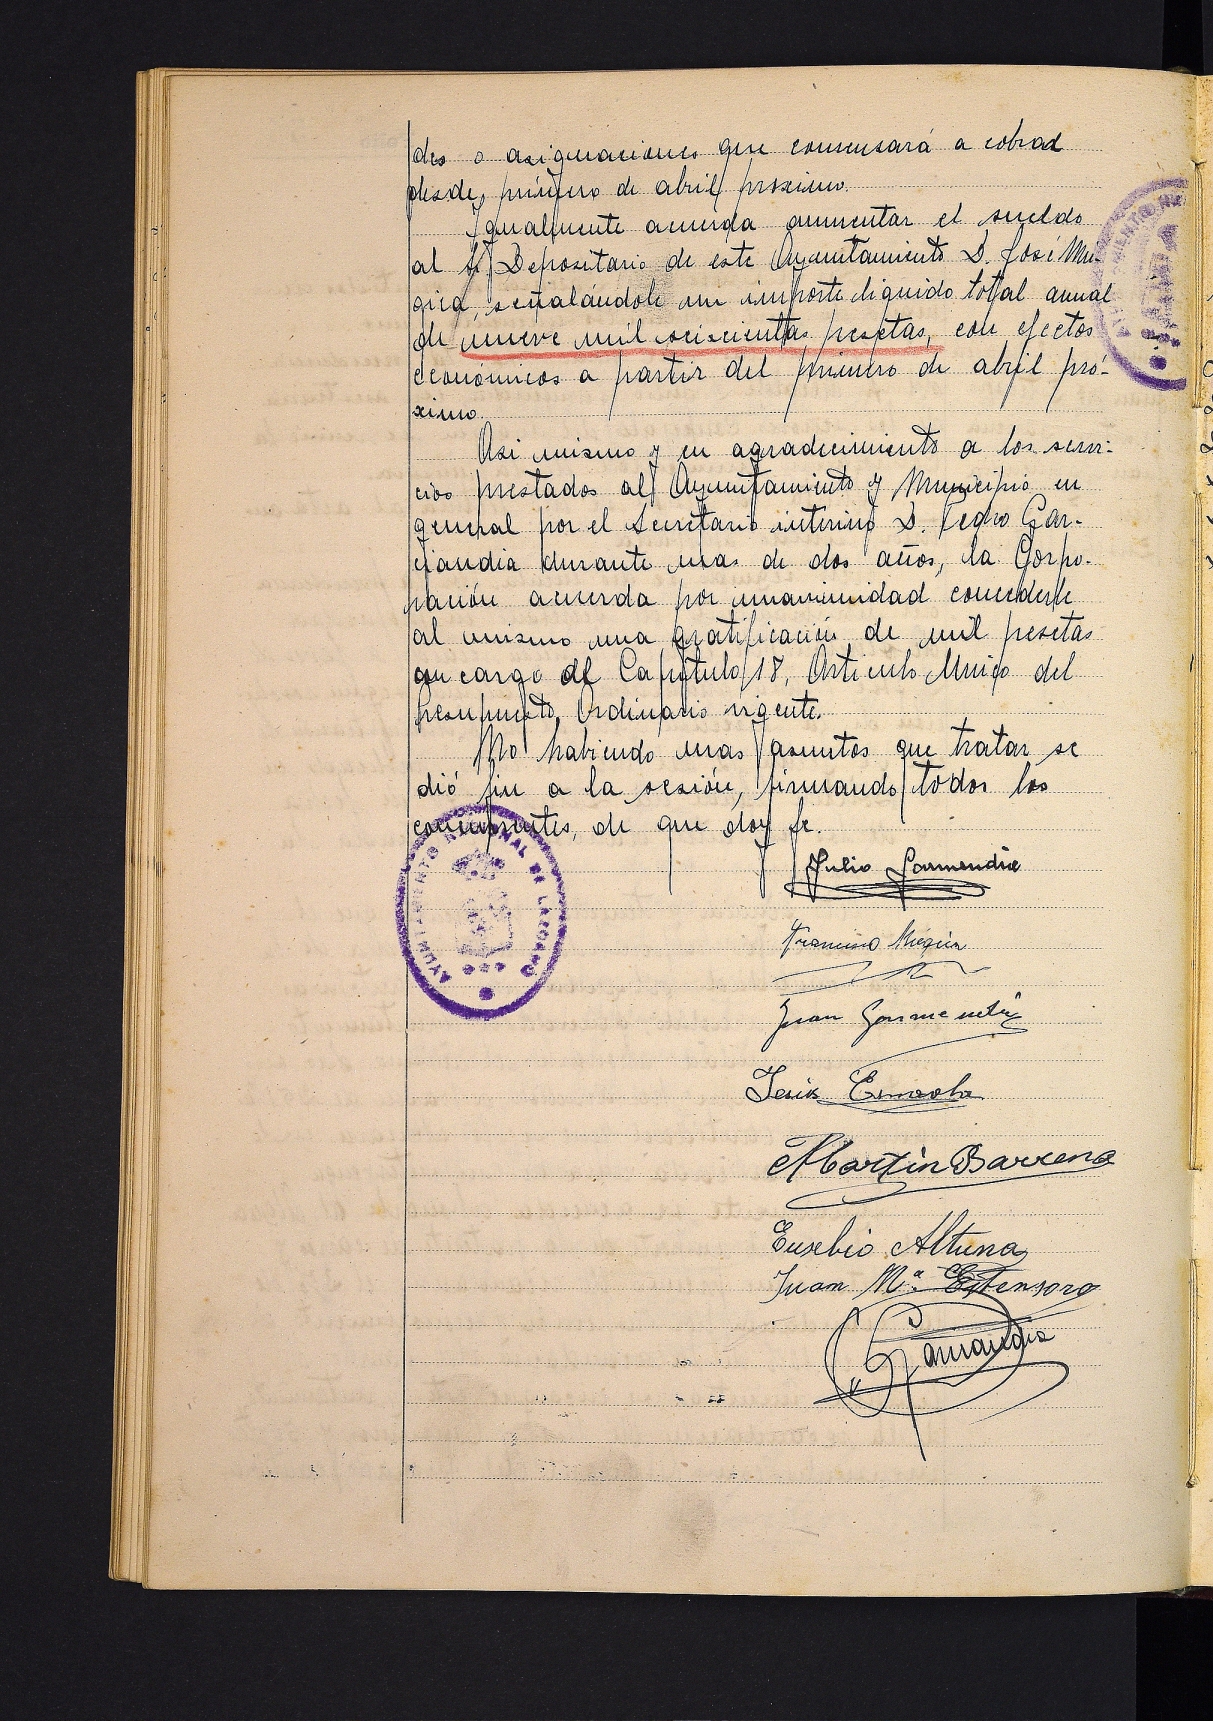 des o asignaciones que comensará a cobrar
desde primero de abril proximo.
Igualmente acuerda aumentar el sueldo
al Sr. Depositario de este Ayuntamiento D. José Mu-
gica, señalándole un importe líquido total anual
de nueve mil seiscientas pesetas, con efectos
económicos a partir del primero de abril pró-
ximo.
Asi mismo y en agradecimiento a los servi-
cios prestados al Ayuntamiento y Municipio en
general por el Secretario interino D. Pedro Gar-
ciandia durante mas de dos años, la Corpo-
ración acuerda por unanimidad concederle
al mismo una gratificación de mil pesetas
con cargo al Capítulo 18, Articulo Unico del
Presupuesto Ordinario vigente.
No habiendo mas asuntos que tratar se
dió fin a la sesión, firmando todos los
concurrentes, de que doy fe.
Julio Garmendia
AYUNTAMIENTO NACIONAL DE LAZCANO
Francisco Mugica
Juan Garmendia
Jesús
Martin Barrena
Eusebio Altuna
Juan Mª Estensoro
Garciandia